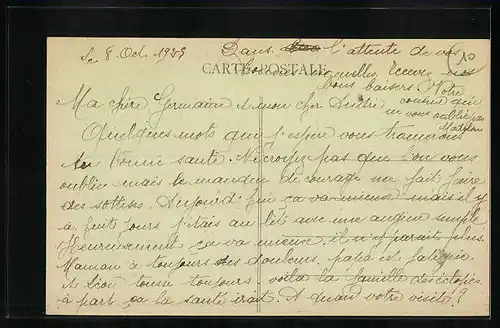 Le 8 Oct. 1923
Dans l'attente de vos
bonnes nouvelles, recevez nos
CARTE POSTALE
bons baisers. Votre
Ma chère Germaine et mon cher André
cousine qui
ne vous oublie pas
Madelon
Quelques mots que j'espère vous trouverons
en bonne santé. Ne croyez pas que l'on vous
oublie mais le manque de courage nous fait faire
des sottises. Aujourd'hui ça va mieux mais il y
a huit jours j'étais au lit avec une angine simple
Heureusement ça va mieux, il n'y parait plus.
Maman a toujours des douleurs, papa est fatigué
et Léon tousse toujours voila la famille d'éclopés
à part ça la santé irait. A quand votre visite ?
10